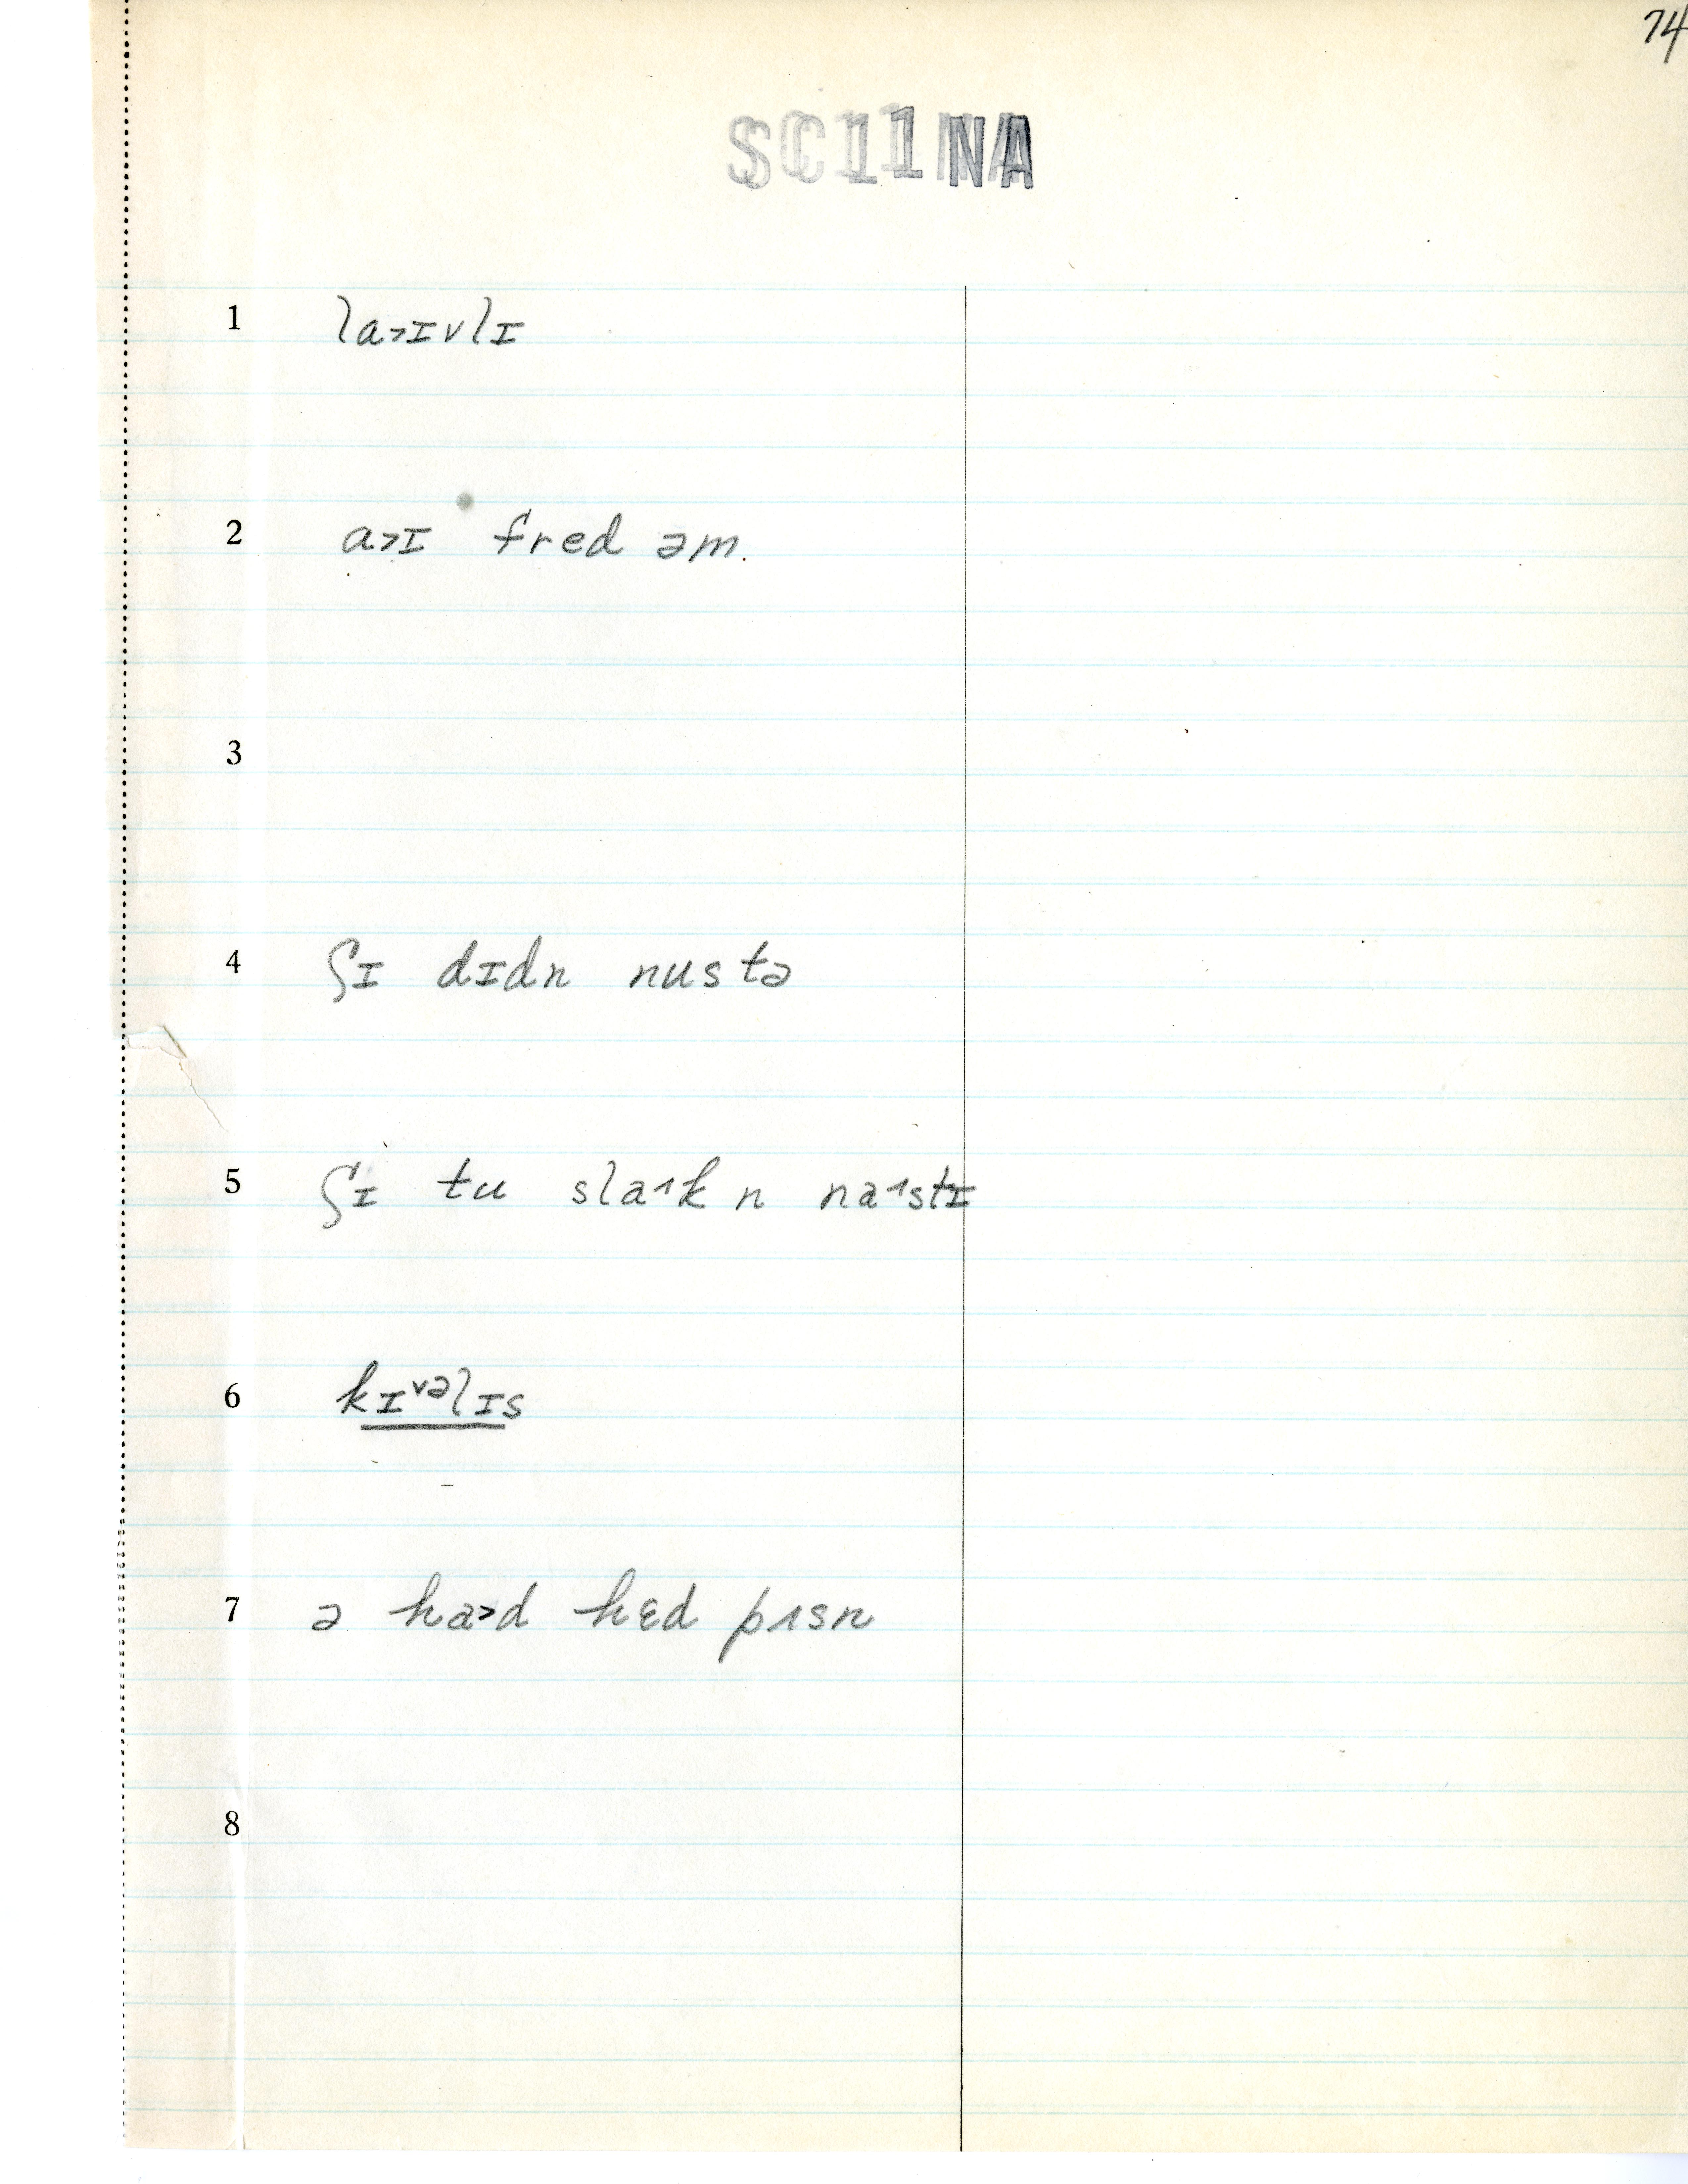 74
SC11NA
1 la˃ɪvlɪ
2 a˃ɪ fred əm.
3
4 ʃɪ dɪdn nustə
5 ʃɪ tu sla˄k n na˄stɪ
6 kɪᵛᵊlɪs
7 ə ha˃d hɛd pɜsn
8